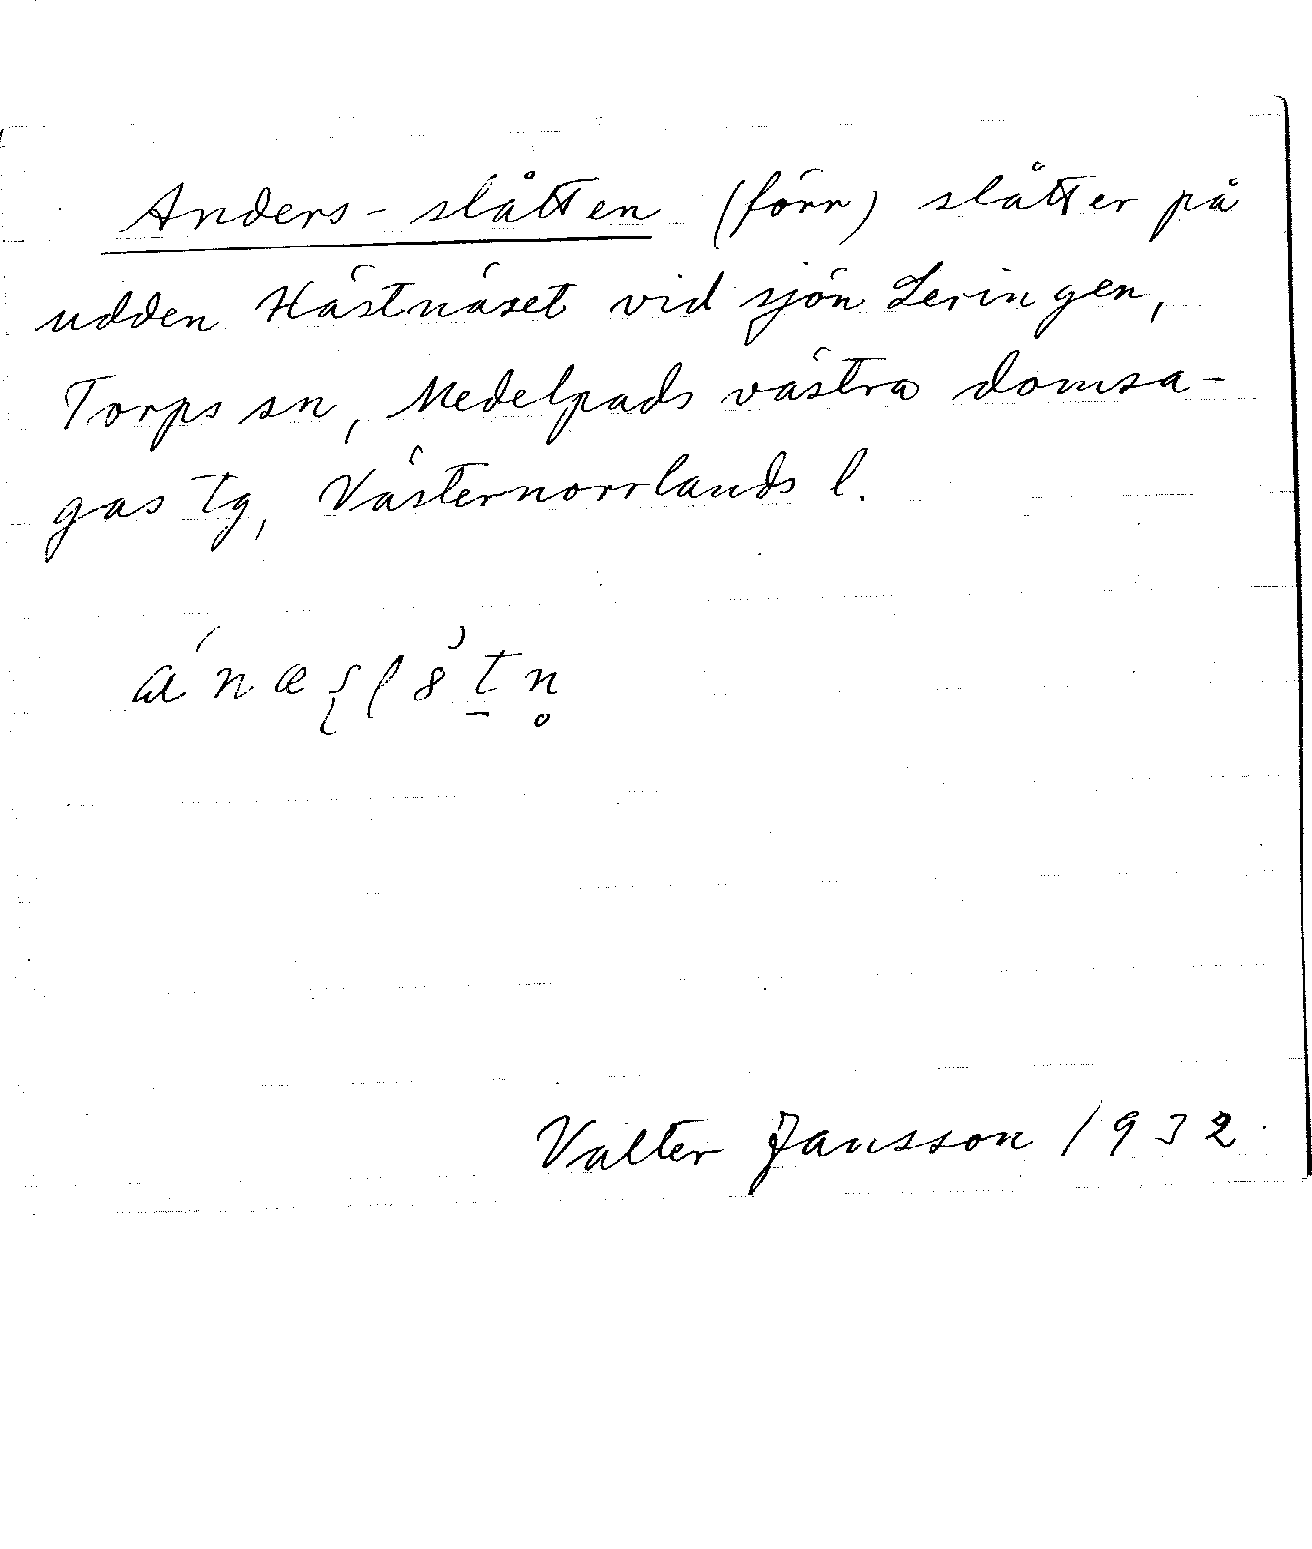 Anders-slåtten (förr) slåtter på
udden Hästnäset vid sjön Leringen,
Torps sn, Medelpads västra domsa-
gas tg, Västernorrlands l.
Valter Jansson 1932.